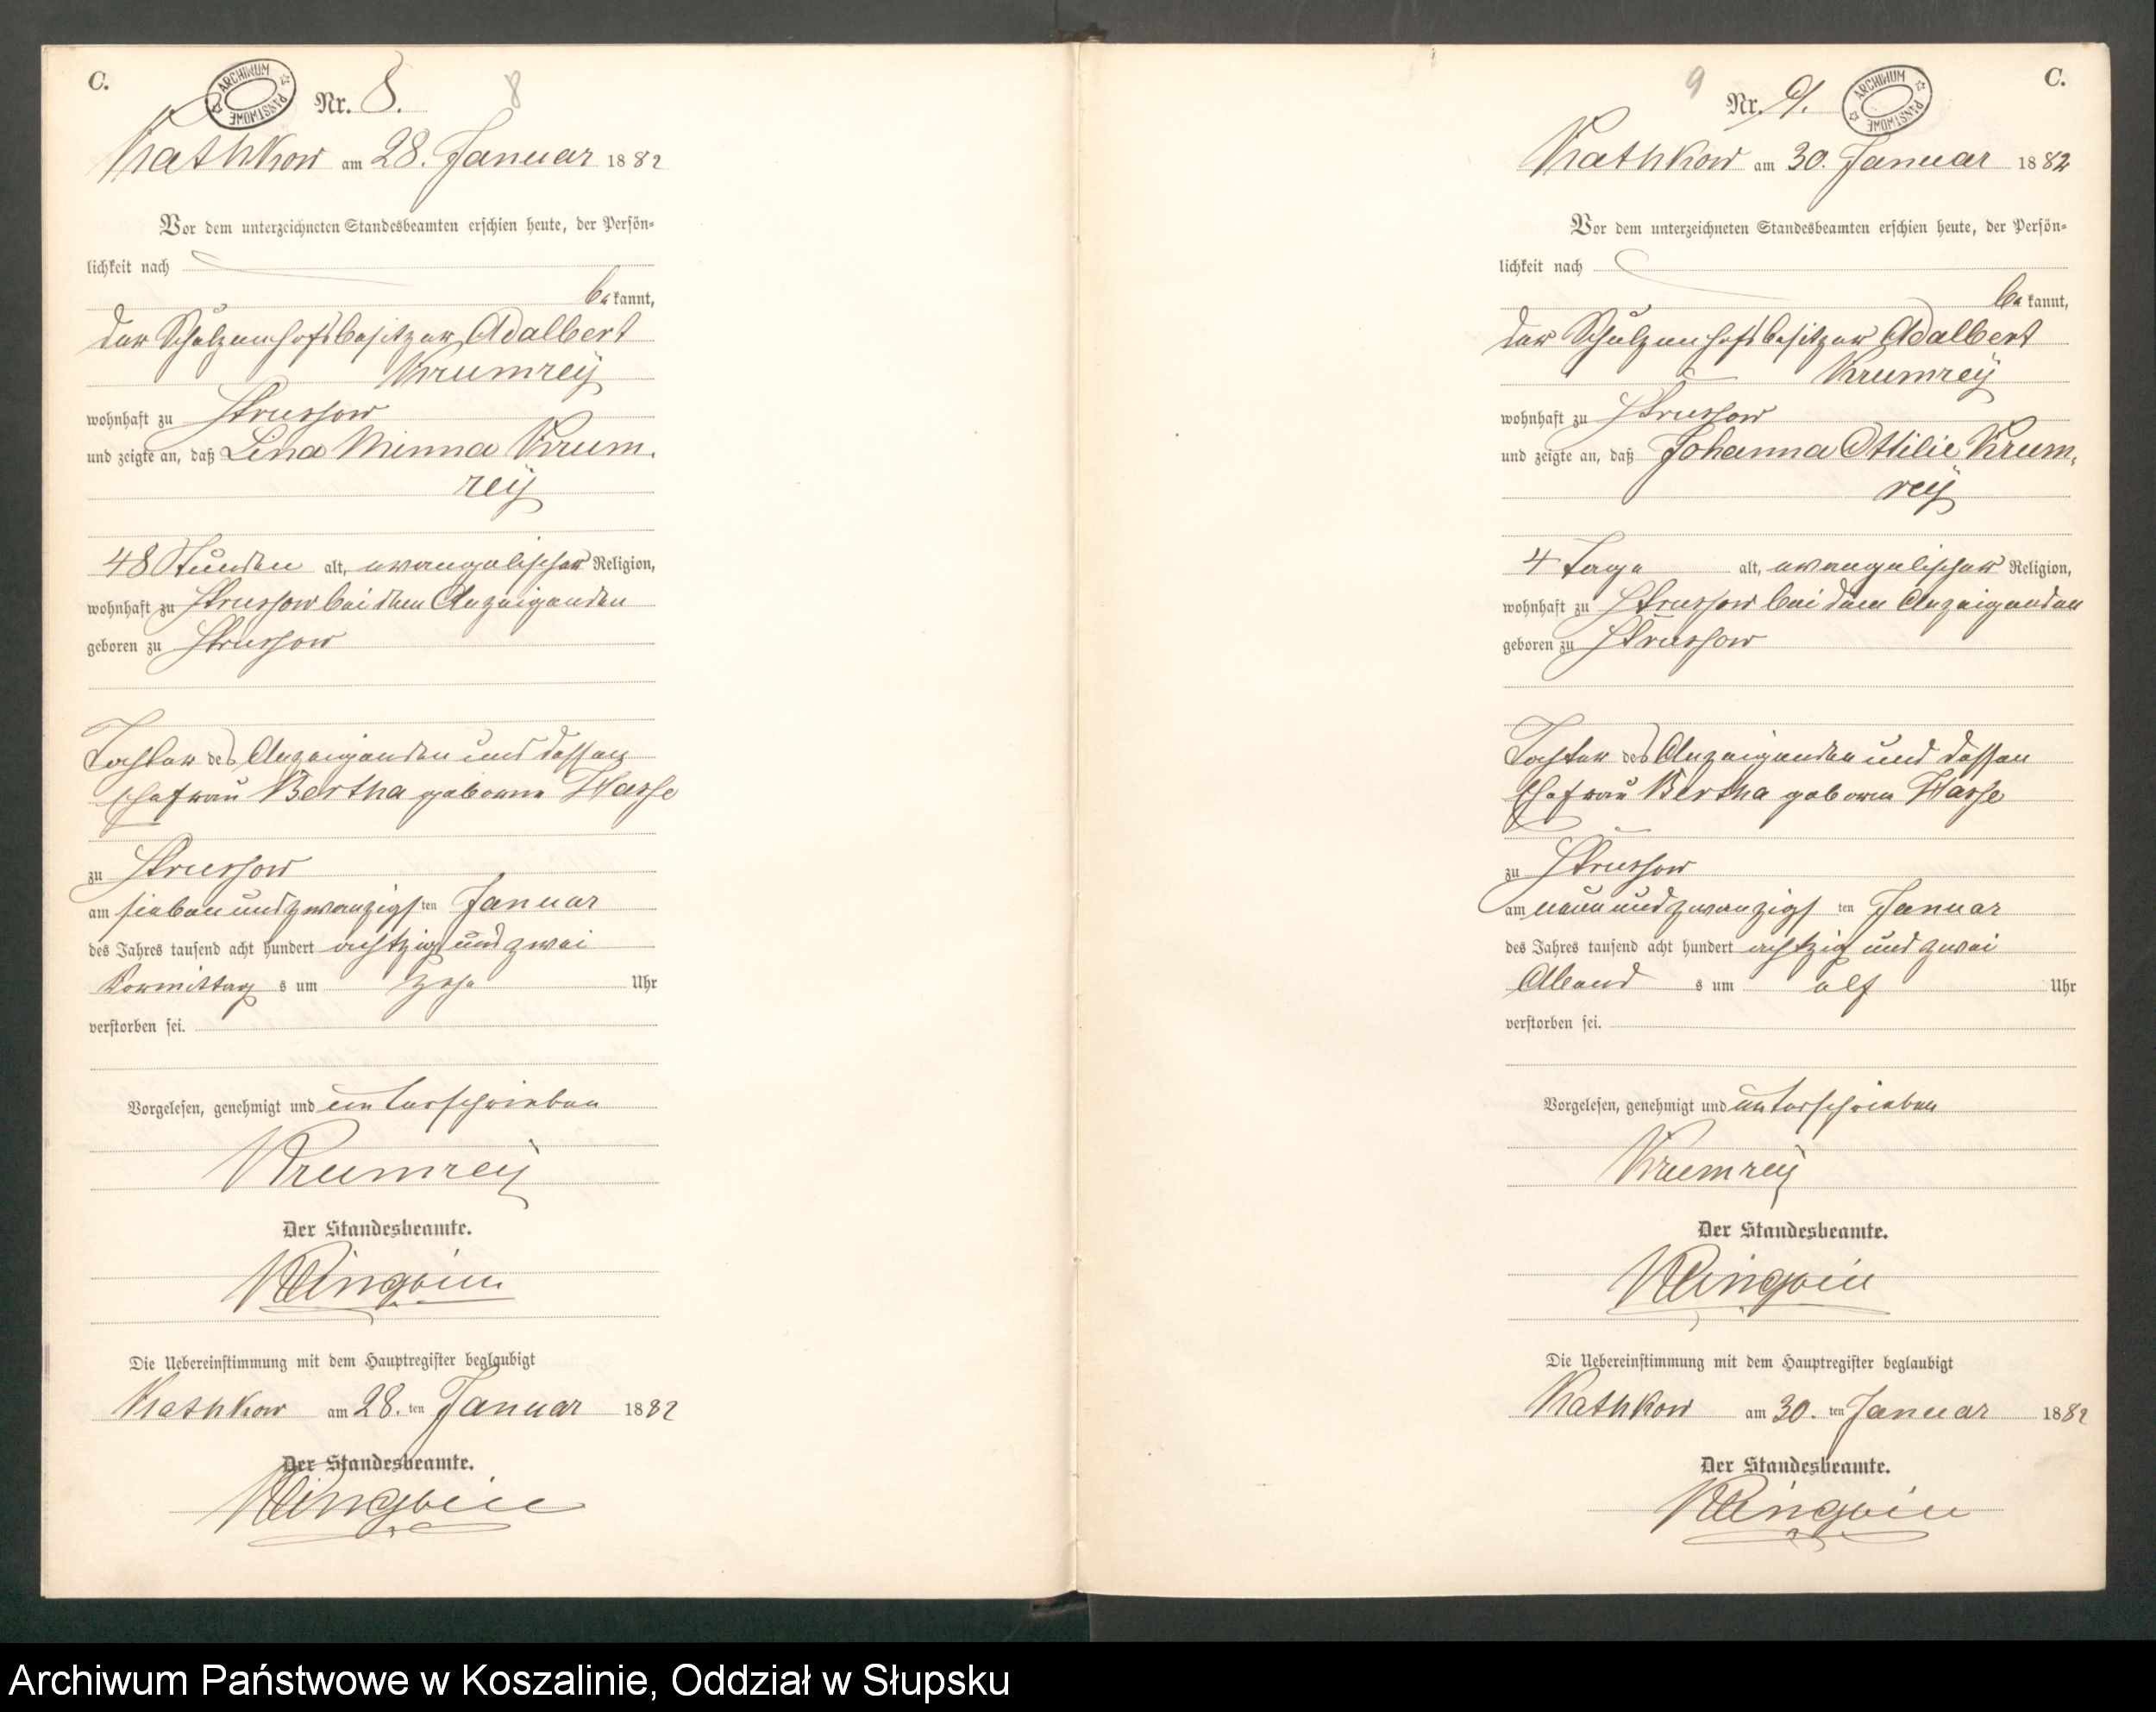 C.
ARCHIWUM PAŃSTWOWE
Nr. 8.
8
Kathkow am 28. Januar 1882
Vor dem unterzeichneten Standesbeamten erschien heute, der Persön-
lichkeit nach
bekannt,
der Schulzenhofsbesitzer Adalbert
Krumrey
wohnhaft zu Strussow
und zeigte an, daß Lina Minna Krum-
rey
48 Stunden alt, evangelischer Religion,
wohnhaft zu Strussow bei dem Anzeigenden
geboren zu Strussow
Tochter des Anzeigenden und dessen
Ehefrau Bertha geborne Hasse
zu Strussow
am siebenundzwanzigsten Januar
des Jahres tausend acht hundert achtzig und zwei
Vormittags um zehn Uhr
verstorben sei.
Vorgelesen, genehmigt und unterschrieben
Krumrey
Der Standesbeamte.
Die Uebereinstimmung mit dem Hauptregister beglaubigt
Kathkow am 28.ten Januar 1882
Der Standesbeamte.
9
Nr. 9.
ARCHIWUM PAŃSTWOWE
C.
Kathkow am 30. Januar 1882
Vor dem unterzeichneten Standesbeamten erschien heute, der Persön-
lichkeit nach
bekannt,
der Schulzenhofsbesitzer Adalbert
Krumrey
wohnhaft zu Strussow
und zeigte an, daß Johanna Ottilie Krum-
rey
4 Tage alt, evangelischer Religion,
wohnhaft zu Strussow bei dem Anzeigenden
geboren zu Strussow
Tochter des Anzeigenden und dessen
Ehefrau Bertha geborne Hasse
zu Strussow
am neunundzwanzigsten Januar
des Jahres tausend acht hundert achtzig und zwei
Abends um elf Uhr
verstorben sei.
Vorgelesen, genehmigt und unterschrieben
Krumrey
Der Standesbeamte.
Die Uebereinstimmung mit dem Hauptregister beglaubigt
Kathkow am 30.ten Januar 1882
Der Standesbeamte.
Archiwum Państwowe w Koszalinie, Oddział w Słupsku